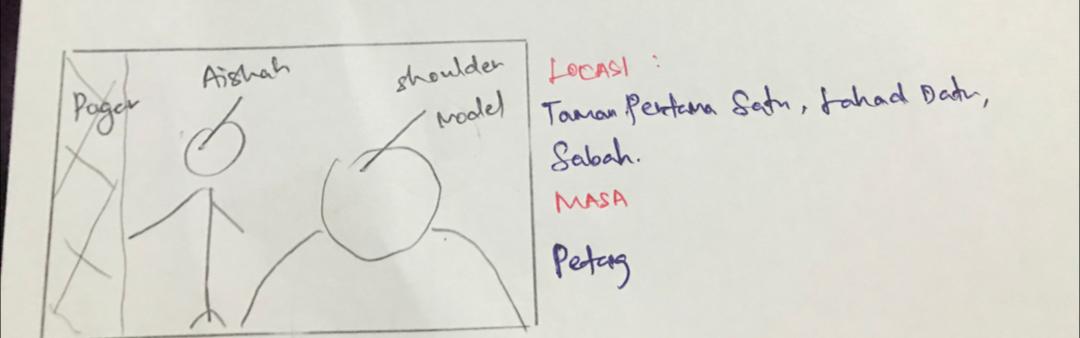 Pagar
Aishah
shoulder
model
LOCASI :
Taman Pertama Satu, Lahad Datu,
Sabah.
MASA
Petang